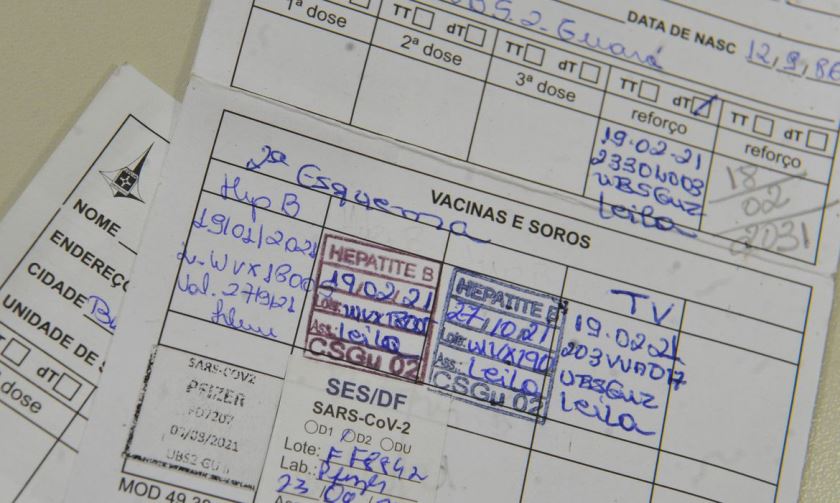 UBS 2 - Guará
DATA DE NASC 12, 9, 86
TT dT
1ª dose
TT dT
2ª dose
TT dT
3ª dose
TT dT
reforço
TT dT
reforço
19.02.21
UBSGUZ
Leila
18
02
2031
2ª Esquema
VACINAS E SOROS
Hep B
19/01/2021
Val.
HEPATITE B
19,02,21
Lote:
Ass: Leila
CSGU 02
HEPATITE B
27,10,21
Lote: WVX190
Ass.: Leila
CSGU 02
TV
19.02.21
203VVA017
UBSGUZ
Leila
NOME
ENDEREÇO
CIDADE
UNIDADE DE
TT dT
dose
SARS-COV2
PFIZER
UBS2
SES/DF
SARS-CoV-2
D1 D2 DU
Lote: FF8842
Lab.: Pfizer
MOD 49.